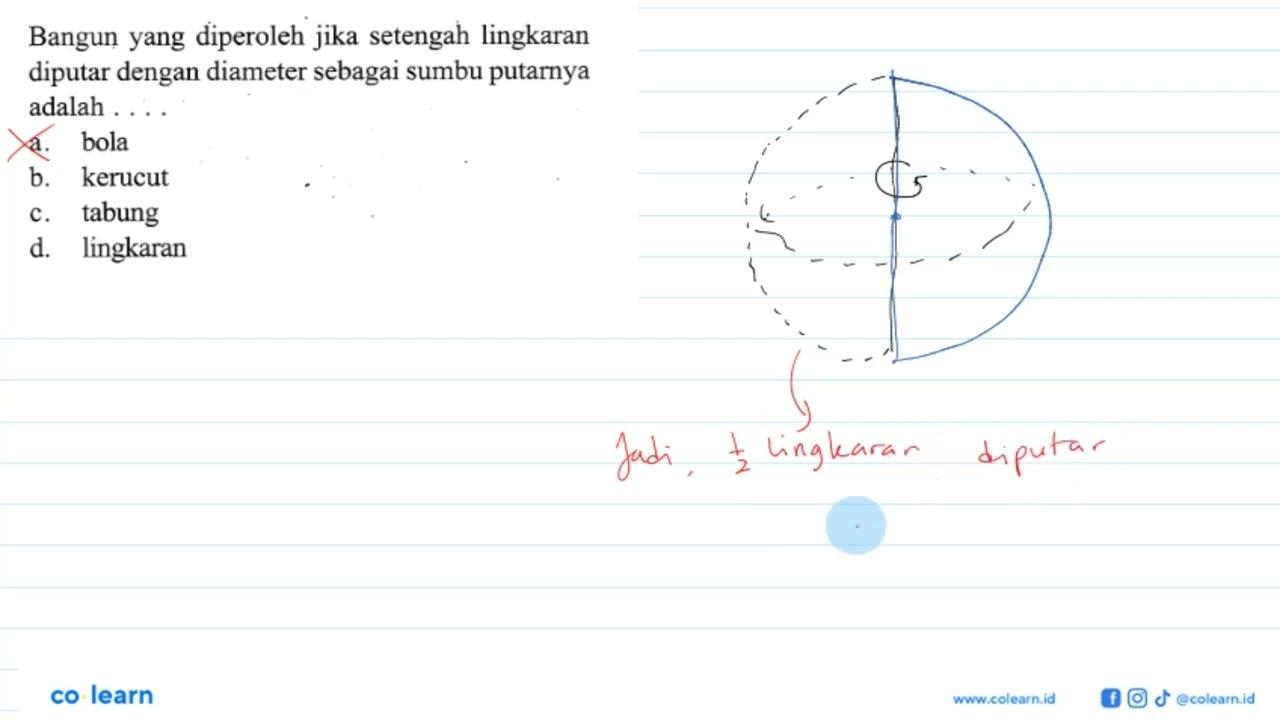 Bangun yang diperoleh jika setengah lingkaran
diputar dengan diameter sebagai sumbu putarnya
adalah . . . .
a. bola
b. kerucut
c. tabung
d. lingkaran
Jadi, 1/2 lingkaran diputar
co learn
www.colearn.id @colearn.id